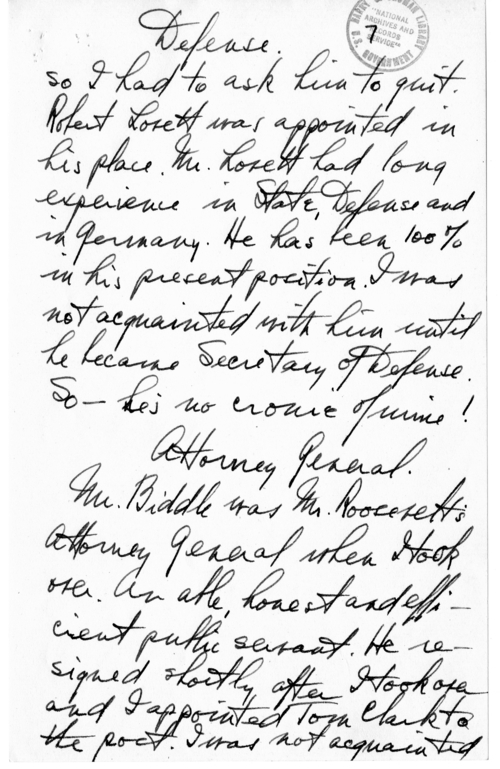 Defense.
7
"NATIONAL
ARCHIVES AND
RECORDS
SERVICE"
U.S. GOVERNMENT
so I had to ask him to quit.
Robert Lovett was appointed in
his place. Mr. Lovett had long
experience in State, Defense and
in Germany. He has been 100%
in his present position. I was
not acquainted with him until
he became Secretary of Defense.
So – he's no cronie of mine!
Attorney General.
Mr. Biddle was Mr. Roosevelt's
Attorney General when I took
over. An able, honest and effi-
cient public servant. He re-
signed shortly after I took over
and I appointed Tom Clark to
the post. I was not acquainted